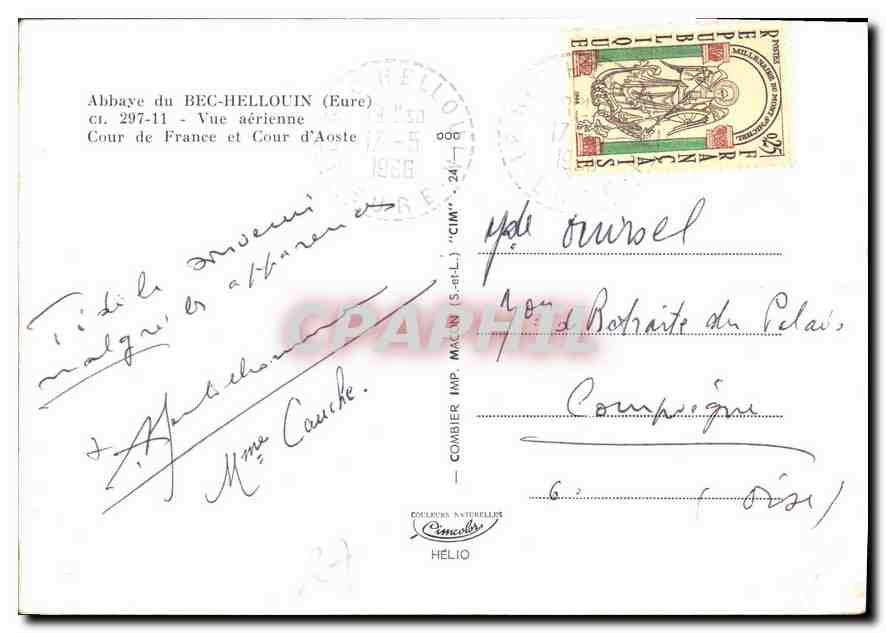 Abbaye du BEC-HELLOUIN (Eure)
CI. 297-11 - Vue aérienne
Cour de France et Cour d'Aoste
LE BEC HELLOUIN
17 -5
1966
EURE
REPUBLIQUE
FRANÇAISE
POSTES
MILLENAIRE DU MONT St MICHEL
0,25
Fidèle souvenir
malgré les apparences
Mme Cauche.
— COMBIER IMP. MACON (S.-et-L.) "CIM" - 24
Mde Oursel
Mon d Retraite du Palais
Compiègne
6. (Oise)
CPAPHIL
COULEURS NATURELLES
Cimcolor
HÉLIO